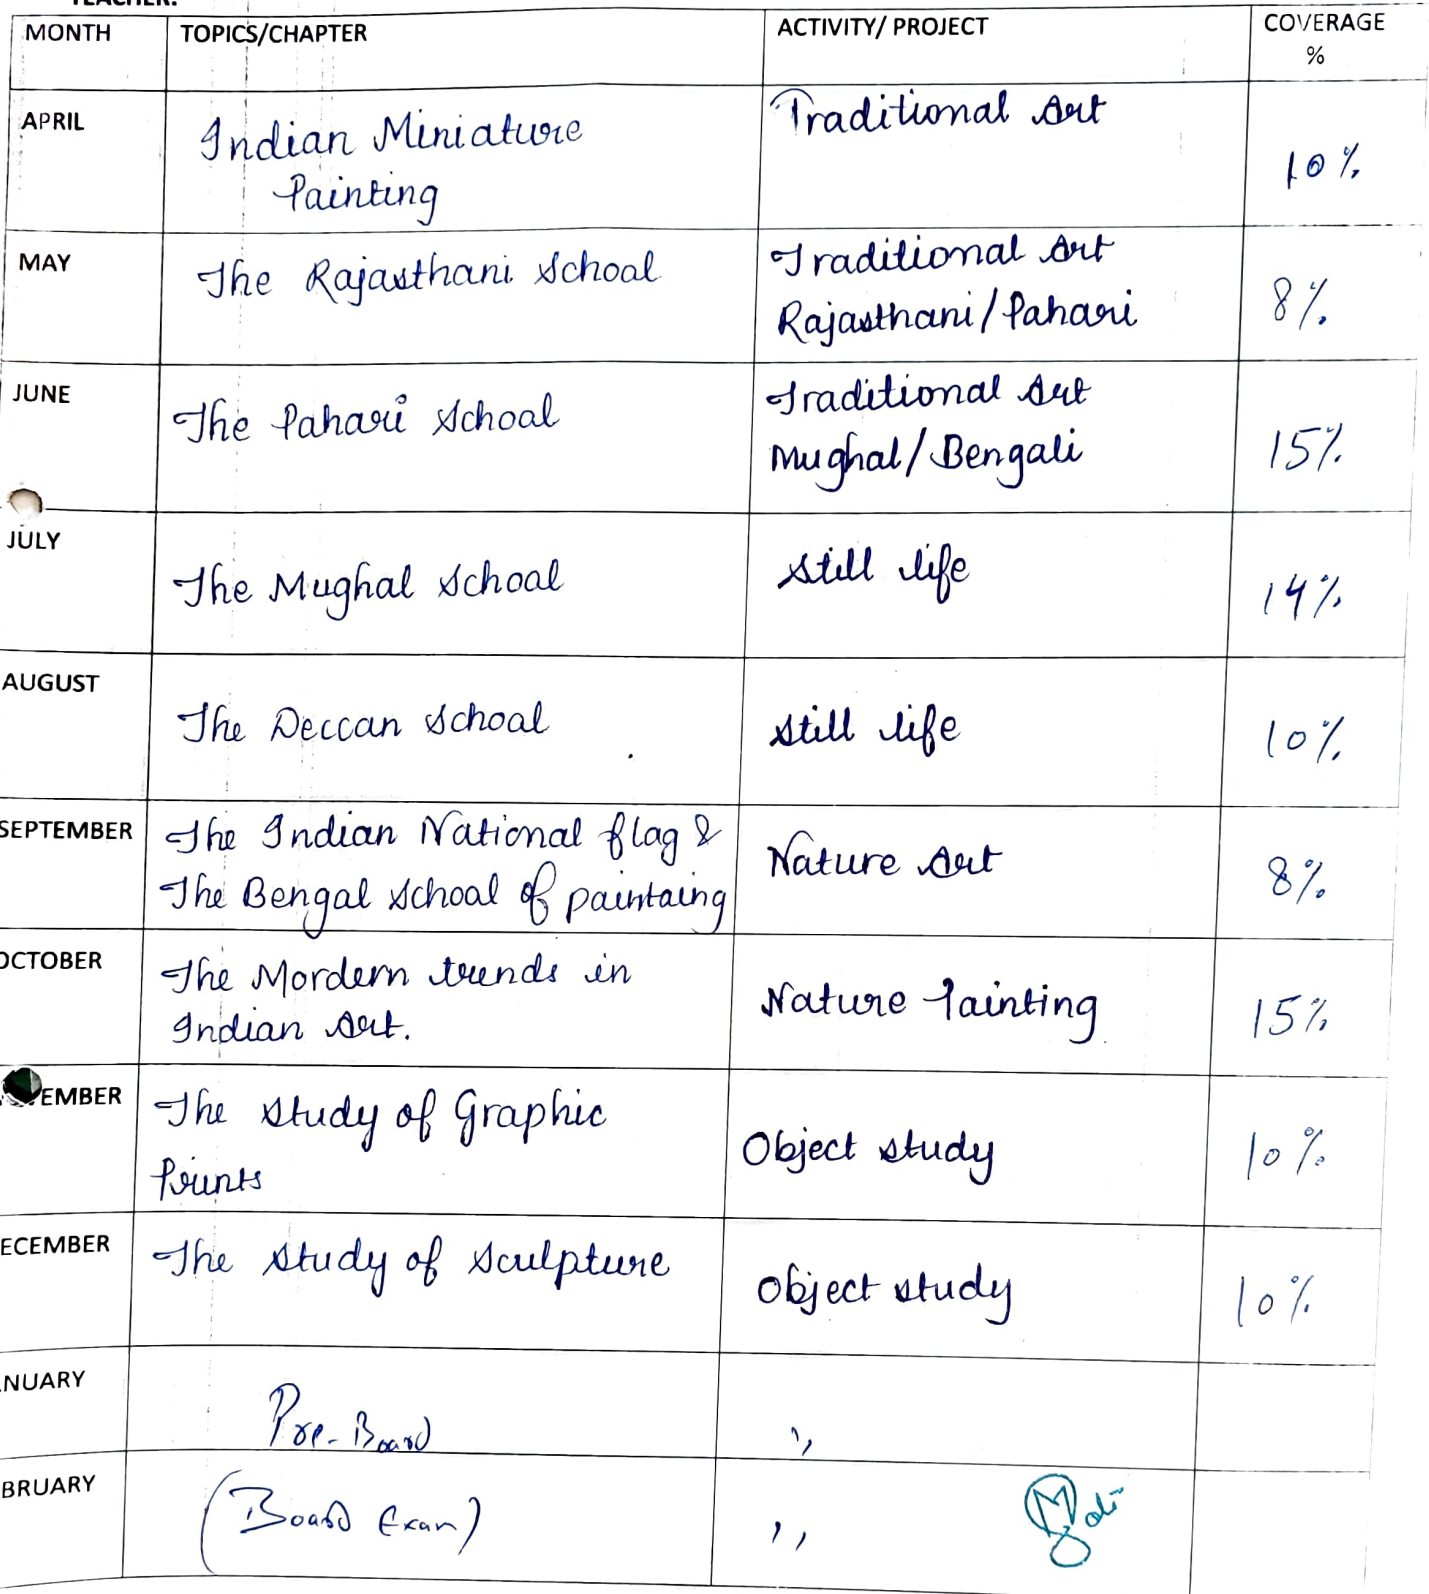 TEACHER:
MONTH TOPICS/CHAPTER ACTIVITY/ PROJECT COVERAGE
%
APRIL Indian Miniature Traditional Art 10%
Painting
MAY The Rajasthani School Traditional Art 8%
Rajasthani/Pahari
JUNE The Pahari School Traditional Art 15%
Mughal/Bengali
JULY The Mughal School Still life 14%
AUGUST The Deccan School Still life 10%
SEPTEMBER The Indian National flag & Nature Art 8%
The Bengal School of paintaing
OCTOBER The Mordern trends in Nature Painting 15%
Indian Art.
EMBER The Study of Graphic Object study 10%
Prints
ECEMBER The Study of Sculpture Object study 10%
NUARY Pre-Board ,,
BRUARY (Board Exam) ,,